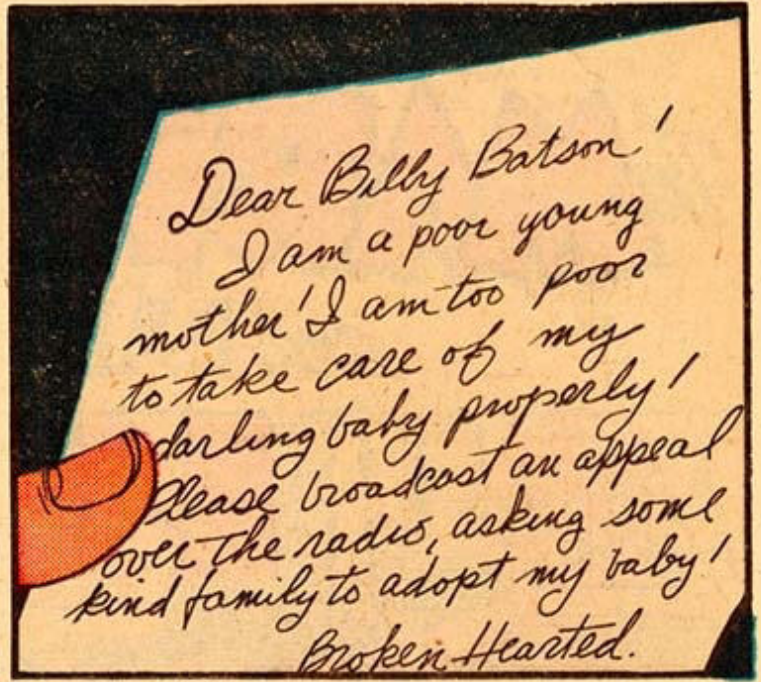 Dear Billy Batson!
I am a poor young
mother! I am too poor
to take care of my
darling baby properly!
Please broadcast an appeal
over the radio, asking some
kind family to adopt my baby!
Broken Hearted.